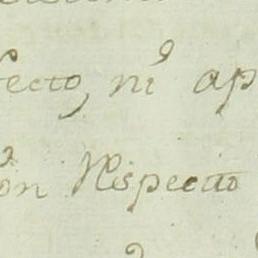 fecto, ni ap
on Respecto